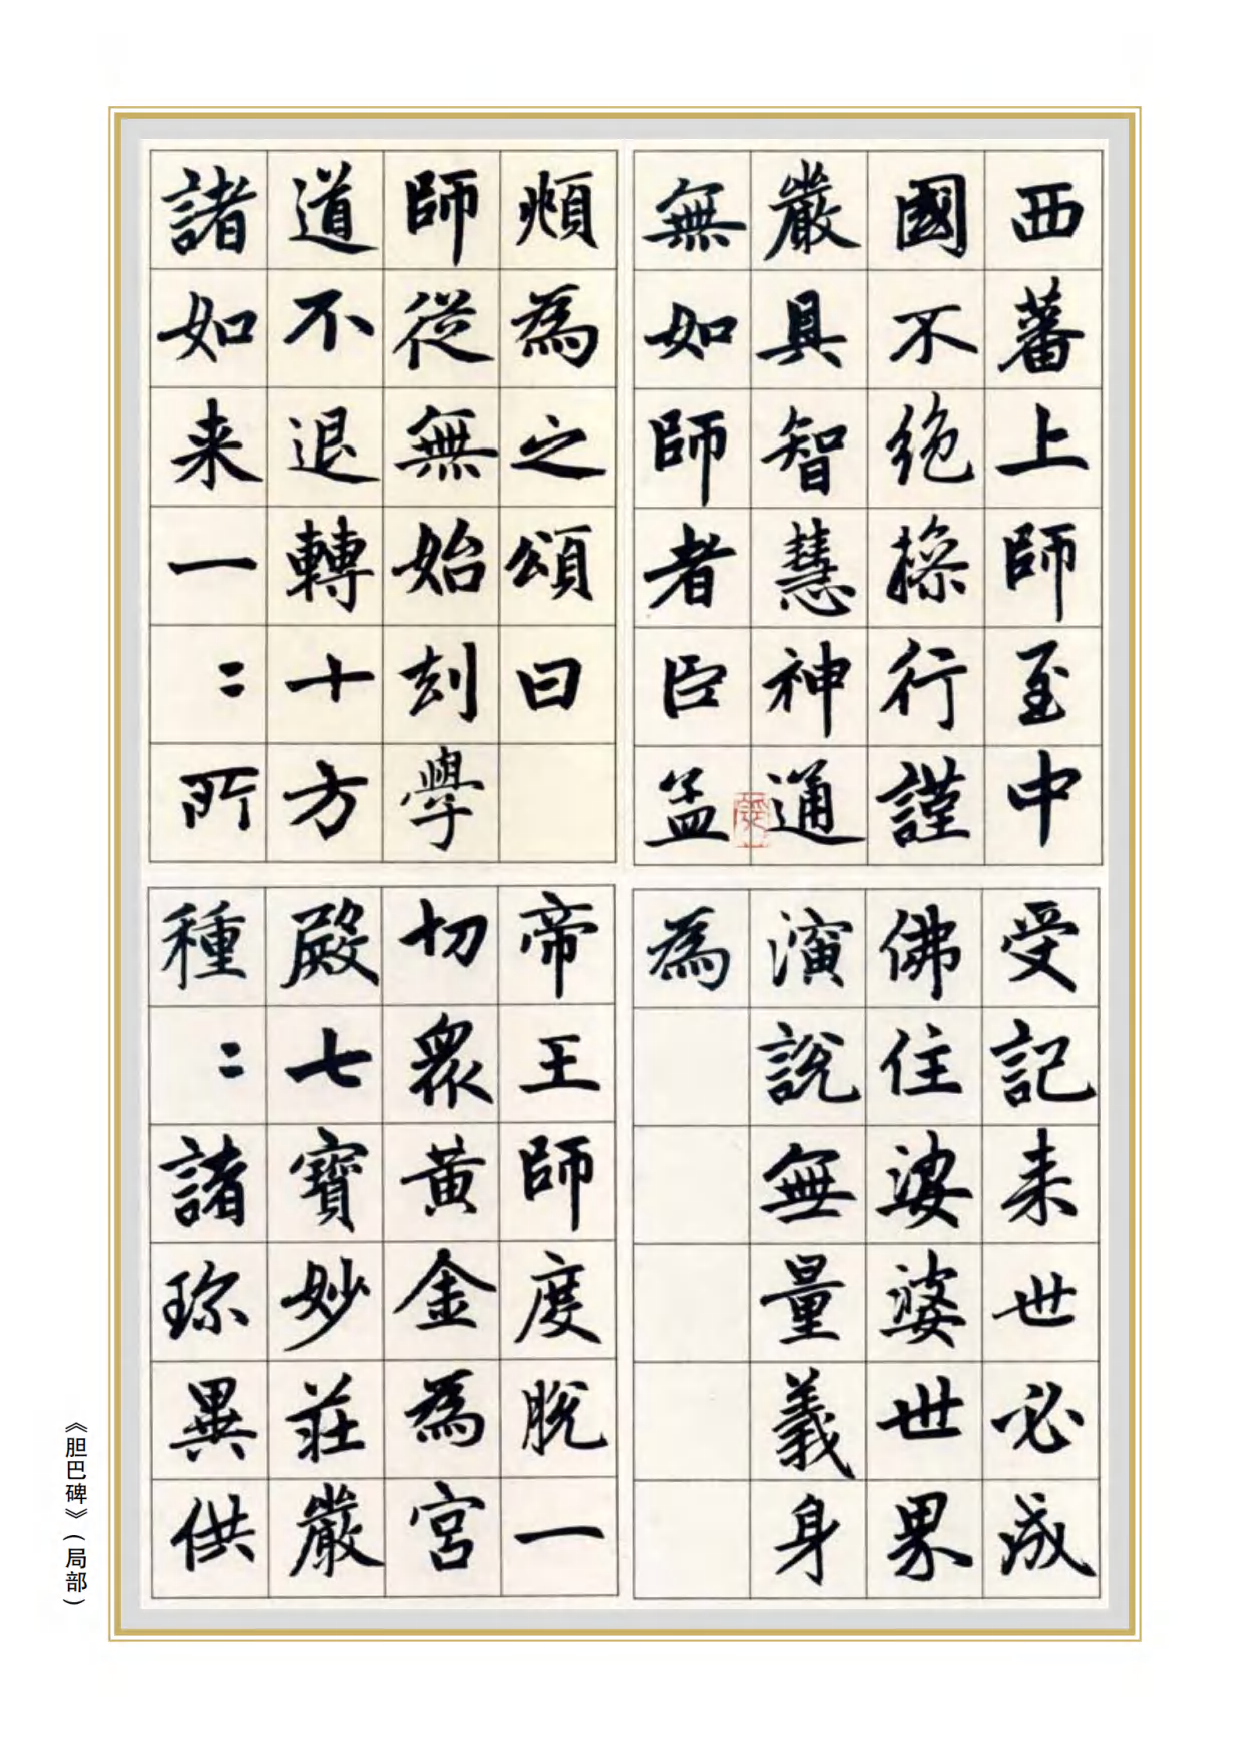 西蕃上師至中
國不絶操行謹
嚴具智慧神通
無如師者臣孟
頫為之頌曰
師從無始劫學
道不退轉十方
諸如来一〻所
受記来世必成
佛住娑婆世界
演說無量義身
為
帝王師度脫一
切眾黃金為宮
殿七寶妙莊嚴
種〻諸珎異供
《胆巴碑》(局部)